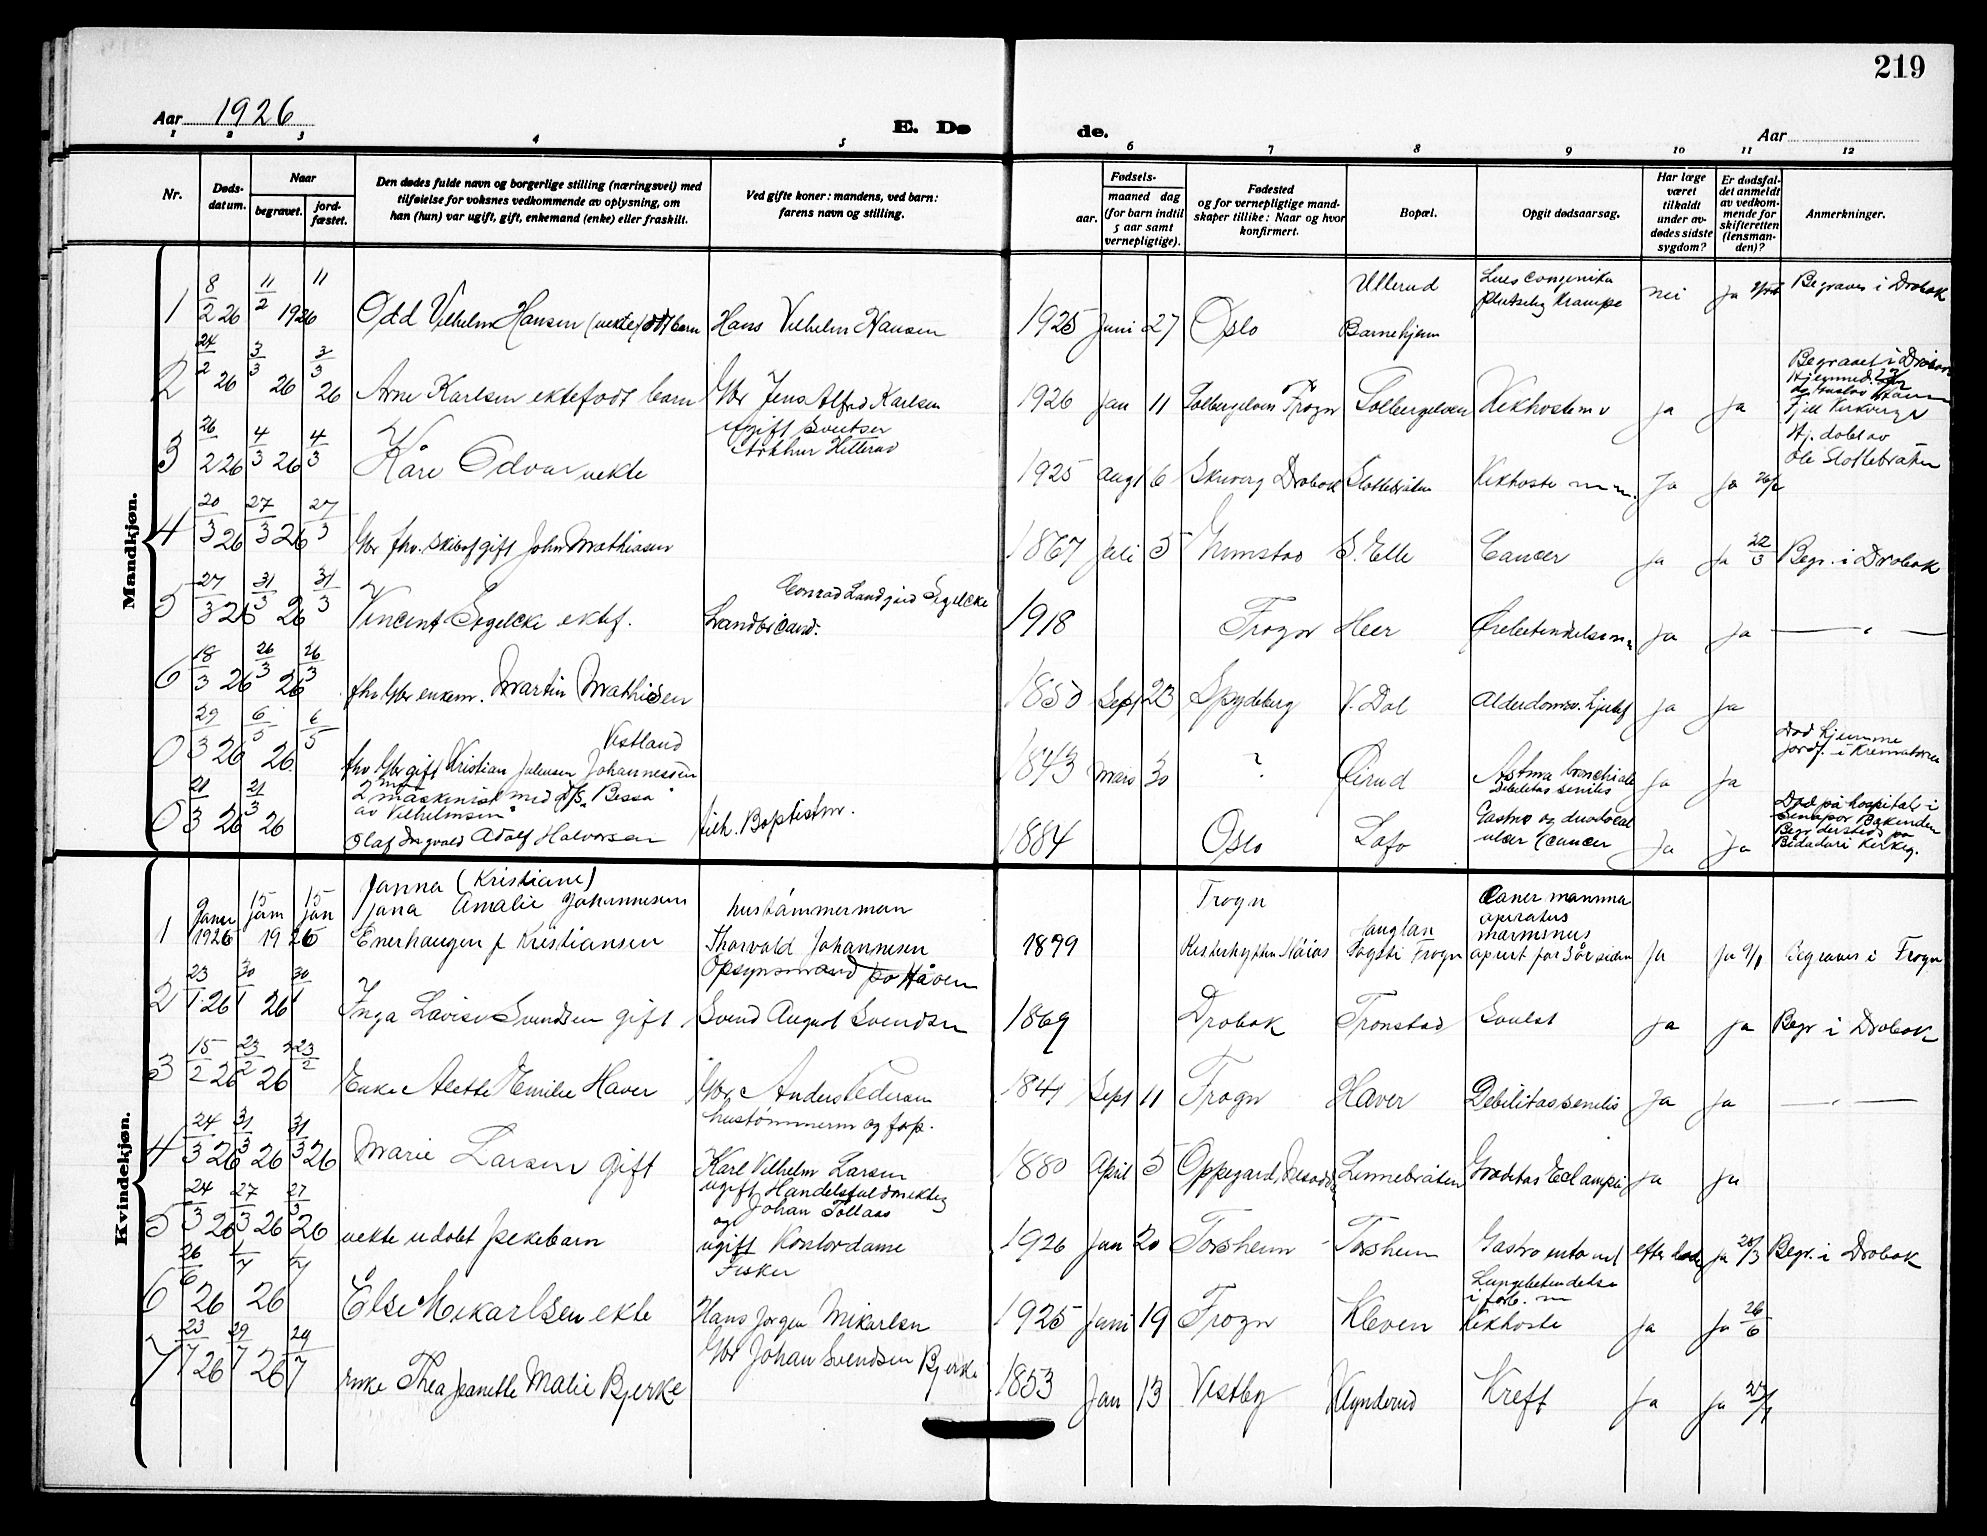 219
Aar 1926
E. Dø de.
Aar
1 2 3 4 5 6 7 8 9 10 11 12
Nr.
Døds-datum.
Naar
begravet.
jord-fæstet.
Den dødes fulde navn og borgerlige stilling (næringsvei) med
tilføielse for voksnes vedkommende av oplysning, om
han (hun) var ugift, gift, enkemand (enke) eller fraskilt.
Ved gifte koner: mandens, ved barn:
farens navn og stilling.
Fødsels-
aar.
maaned dag
(for barn indtil
5 aar samt
vernepligtige).
Fødested
og for vernepligtige mand-
skaper tillike: Naar og hvor
konfirmert.
Bopæl.
Opgit dødsaarsag.
Har læge
været
tilkaldt
under av-
dødes sidste
sygdom?
Er dødsfal-
det anmeldt
av vedkom-
mende for
skifteretten
(lensman-
den)?
Anmerkninger.
Mandkjøn.
1 8/2 26 11/2 1926 11 Odd Vilhelm Hansen (uekte) barn Hans Vilhelm Hansen 1925 Juni 27 Oslo Ullerud Barnehjem Lues congenita Plutselig Krampe nei ja Begraves i Drøbak
2 24/2 26 3/3 26 3/3 26 Arne Karlsen ektefødt barn Gbr Jens Alfred Karlsen 1926 Jan 11 Solbergelven Frogn Solbergelven Kikhoste ja ja Begravet i Drøbak
3 26/2 26 4/3 26 4/3 Kåre Odvar uekte ugift Sveitser Arthur Hitterud 1925 Aug 6 Skiverg Drøbak Slottebråten Kikhoste Ja Ja 26/2 Hj. døbt av Ole Slottebråten
4 20/3 26 27/3 26 27/3 Gbr fhv. skibsf gift John Mathiasen 1867 Juli 5 Grimstad S. Elle Cancer ja Ja 22/3 Begr. i Drøbak
5 27/3 26 31/3 26 31/3 Vincent Segelcke ektef. Conrad Landgird Segelcke Landbr. cand. 1918 Frogn Heer Ja ja — " —
6 18/3 26 26/3 26 26/3 fhv Gbr enkem. Martin Mathisen 1850 Sept 23 Spydeberg V. Dal Alderdomsv. Hjertef ja ja
0 29/3 26 6/5 26 6/5 fhv Gbr gift Kristian Julensen Johannessen Vestland 1843 Mars 30 ? Eirud Astma bronchiale Debilitas senilis ja ja Død hjemme jordf. i Krematoriet
0 21/3 26 21/3 26 2 maskinist med d/s "Bessa" av Vilhelmsen Olaf Ingvald Adolf Halvorsen tilh. Baptistm. 1884 Oslo Lafo Gastro og duodecal ulcer (cancer Ja Ja Død på hospital i Begr dersteds på Bidadari Kirkeg.
Kvindekjøn.
1 9 Januar 1926 15 Jan 1926 15 Jan Janna (Kristiane) Jana Amalie Johannesen Enerhaugen f Kristiansen hustømmerman Thorvald Johannesen 1899 Frogn Sogsti Frogn Cancer mamma operatus apert for 3 år siden Ja Ja 9/1 Begraves i Frogn
2 23/1 26 30/1 26 30/1 Inga Lavise Svendsen gift Opsynsmand på Håven Svend August Svendsen 1869 Drøbak Tronstad Svulst ja ja Begr i Drøbak
3 15/2 26 23/2 26 23/2 Enke Alette Emilie Haver Gbr Anders Pedersen 1841 Sept 11 Frogn Haver Debilitas senilis Ja ja — " —
4 24/3 26 31/3 26 31/3 26 Marie Larsen gift hustømmerm og forp. Karl Vilhelm Larsen 1880 April 5 Oppegård Linnebråten Eclampsi ja ja
5 24/3 26 27/3 26 27/3 26 uekte udøbt pikebarn ugift Handelsfuldmektig Johan Tollaas og ugift Kontordame 1926 Jan 20 Torsheim Torsheim Gastro efter døde ja 26/3 Begr. i Drøbak
6 26/6 26 1/7 26 1/7 Else Mikarlsen ekte Fisker Hans Jørgen Mikarlsen 1925 Juni 19 Frogn Kleven Lungebetendelse i forb. m Kikhoste Ja Ja 26/6
7 23/7 26 29/7 26 29/7 enke Thea Jeanette Malie Bjerke Gbr Johan Svendsen Bjerke 1853 Jan 13 Vestby Klynderud Kreft Ja Ja